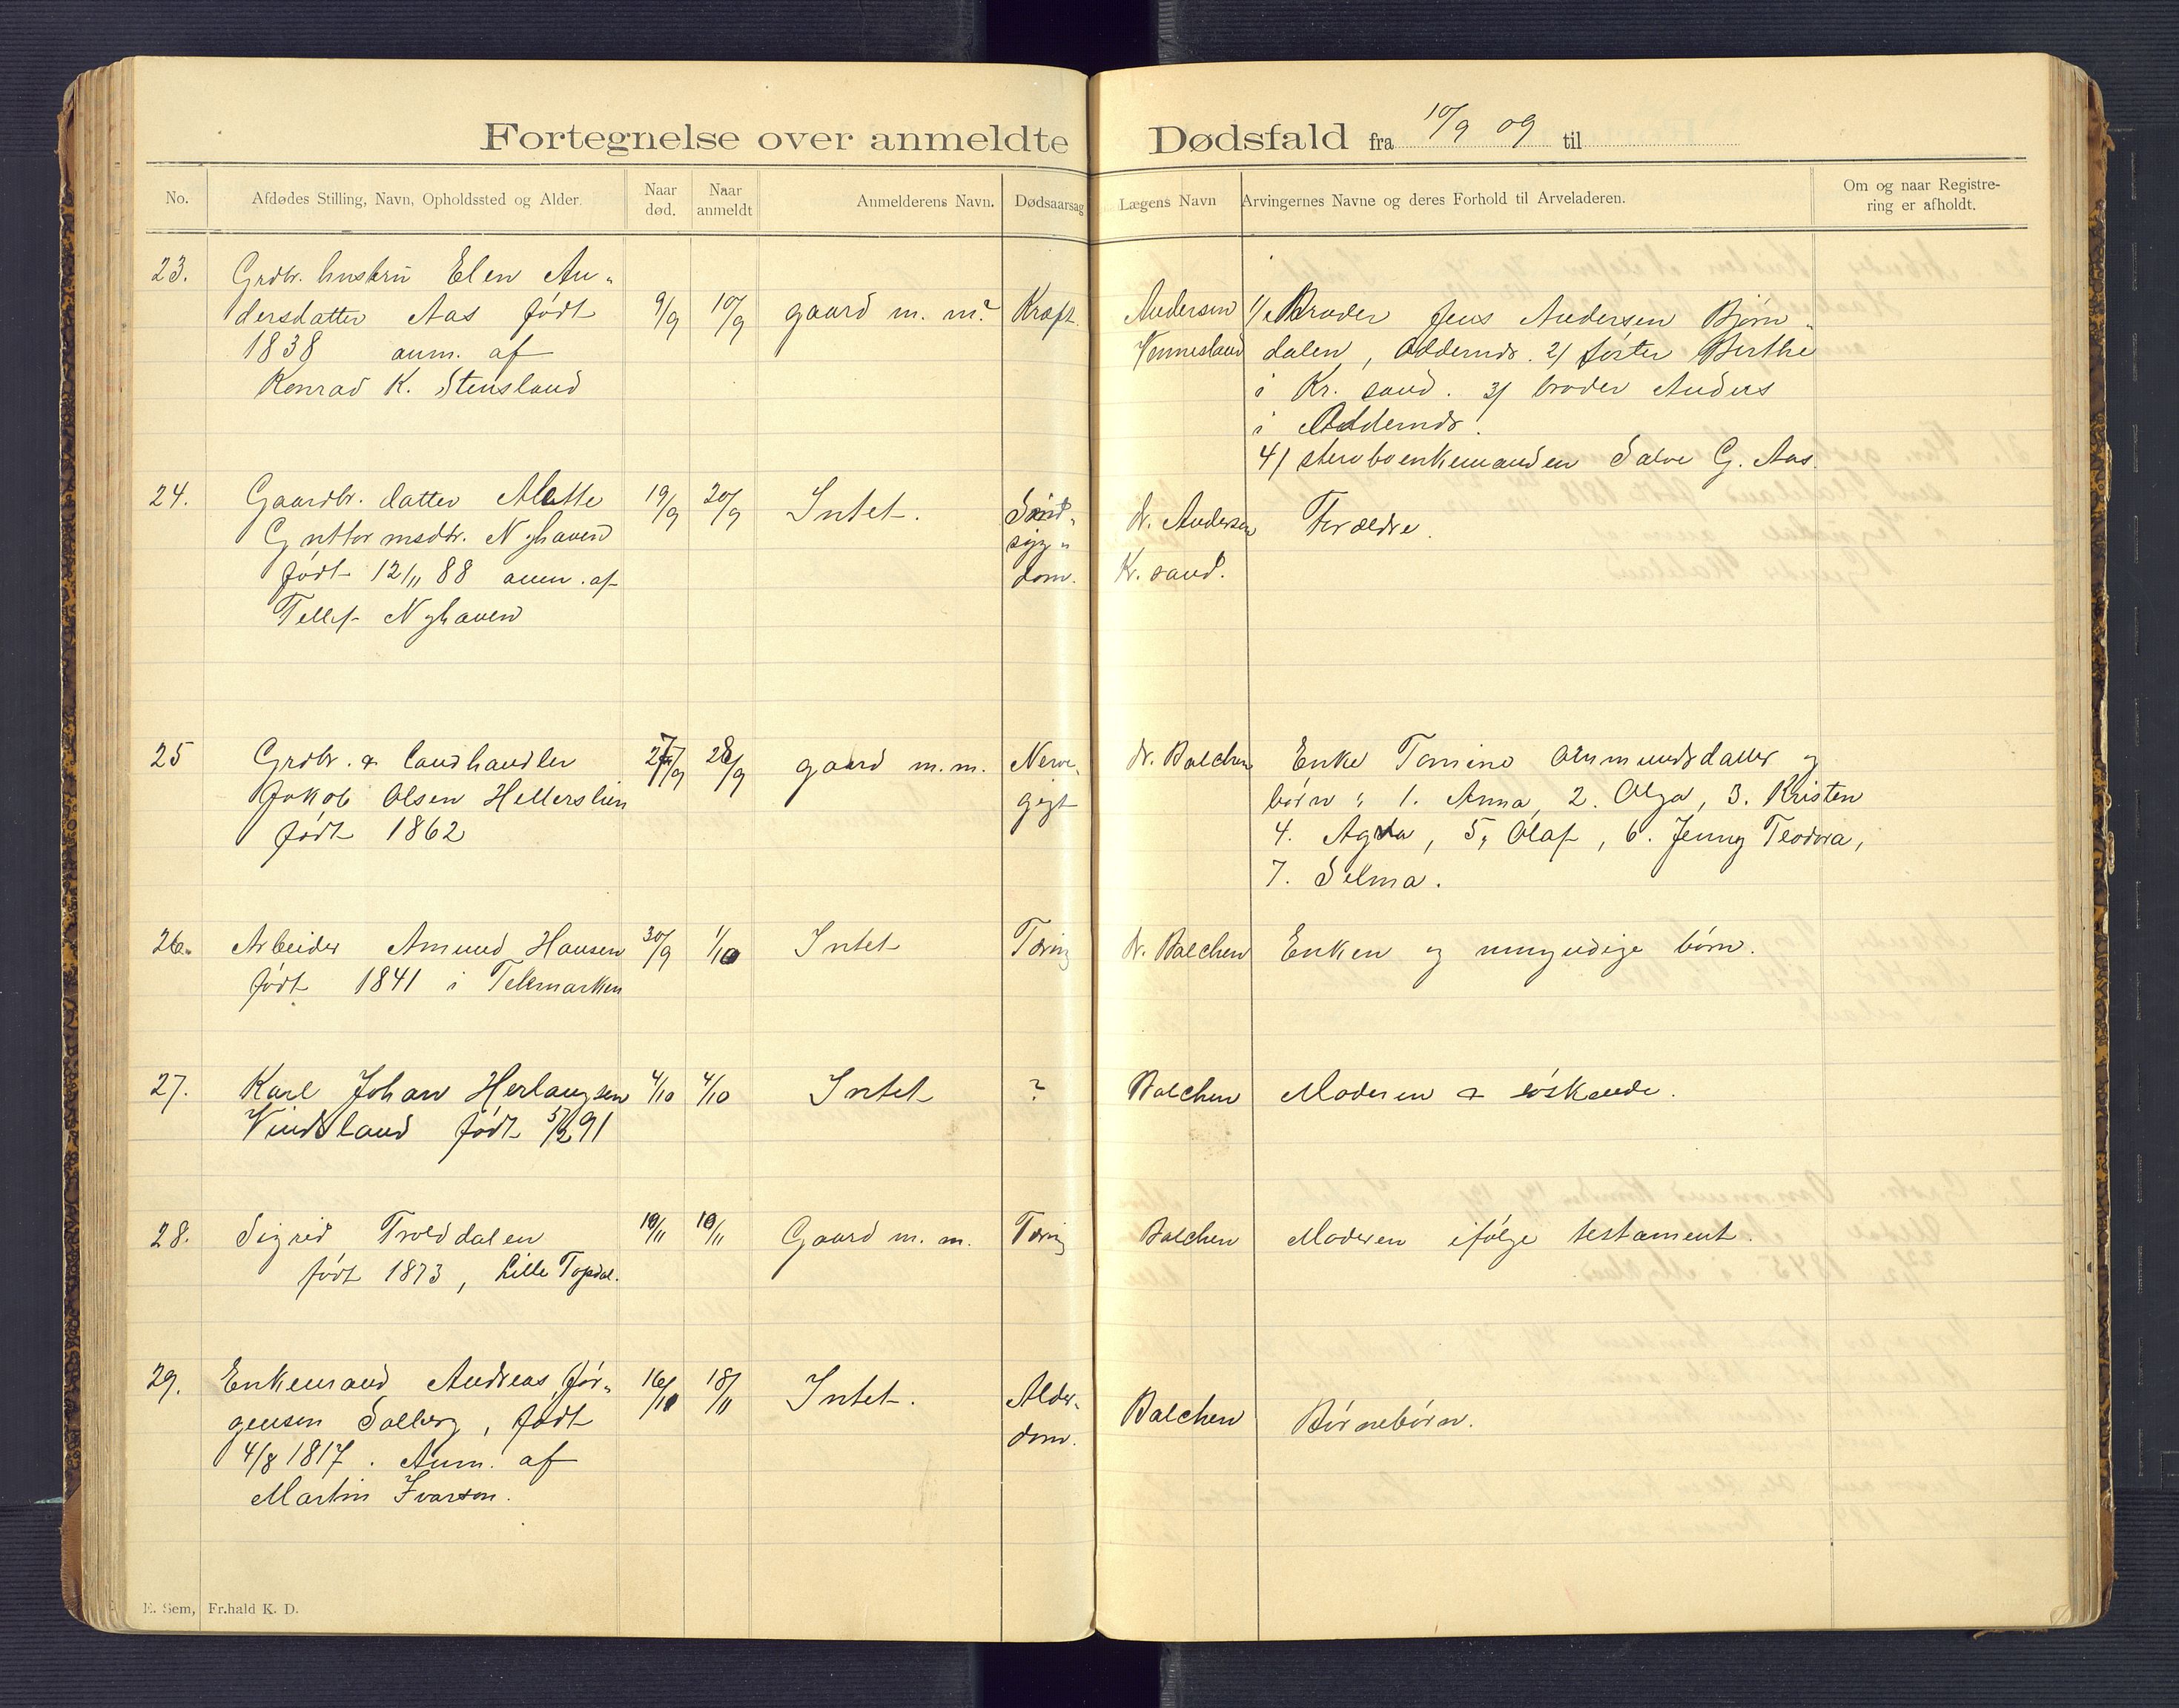 Fortegnelse over anmeldte Dødsfald fra 10/9 09 til
No. Afdødes Stilling, Navn, Opholdssted og Alder. Naar død. Naar anmeldt Anmelderens Navn. Dødsaarsag Lægens Navn Arvingernes Navne og deres Forhold til Arveladeren. Om og naar Registrering er afholdt.
23. Grdbr. hustru Elen An-
dersdatter Aas født 9/9 10/9 gaard m. m. Kræft Andersen 1/ Broder Jens Andersen Bjørn-
1838 anm. af Vennesland dalen, Oddernæs. 2/ søster Berthe
Konrad K. Stensland i Kr. sand. 3/ broder Anders
i Oddernæs.
4/ stervboenkemanden Salve G. Aas.
24. Gaardbr. datter Alette 19/9 20/9 Intet. Sind- dr. Andersen Forældre.
Guttormsdtr. Nyhaven syg- Kr. sand.
født 12/11 88 anm. af dom.
Tellef Nyhaven
25 Grdbr. & landhandler 27/9 28/9 gaard m. m. Nerve- dr. Balchen Enke Tomine Aanmundsdatter og
Jakob Olsen Hellerslien gigt børn: 1. Anna, 2. Olga, 3. Kristen
født 1862 4. Agda, 5, Olaf, 6. Jenny Teodora,
7. Selma.
26. Arbeider Amund Hansen 30/9 1/10 Intet Tæring dr. Balchen Enken og umyndige børn.
født 1841 i Telemarken
27. Karl Johan Herlaugsen 4/10 4/10 Intet ? Balchen Moderen & søskende.
Vindsland født 5/2 91
28. Sigrid Trolddalen 10/11 10/11 Gaard m. m. Tæring Balchen Moderen ifølge testament.
født 1873, Lille Topdal.
29. Enkemand Andreas Jør- 16/10 18/11 Intet. Alder- Balchen Børnebørn.
gensen Solberg, født dom.
4/8 1817. Anm. af
Martin Ivarson.
E. Sem, Fr.hald K. D.